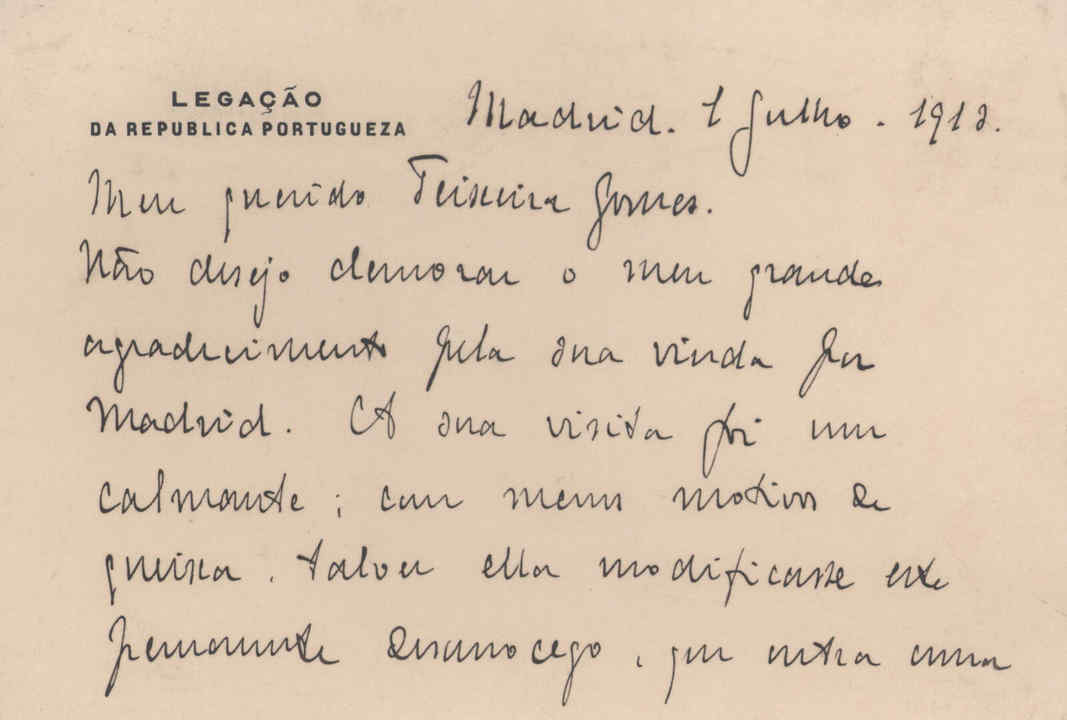 LEGAÇÃO
DA REPUBLICA PORTUGUEZA
Madrid. 1 Julho. 1913.
Meu querido Teixeira Gomes.
Não desejo demorar o meu grande
agradecimento pela sua vinda por
Madrid. A sua visita foi um
calmante; com menos motivos de
queixa, talvez ella modificasse este
permanente desassocego, que entra